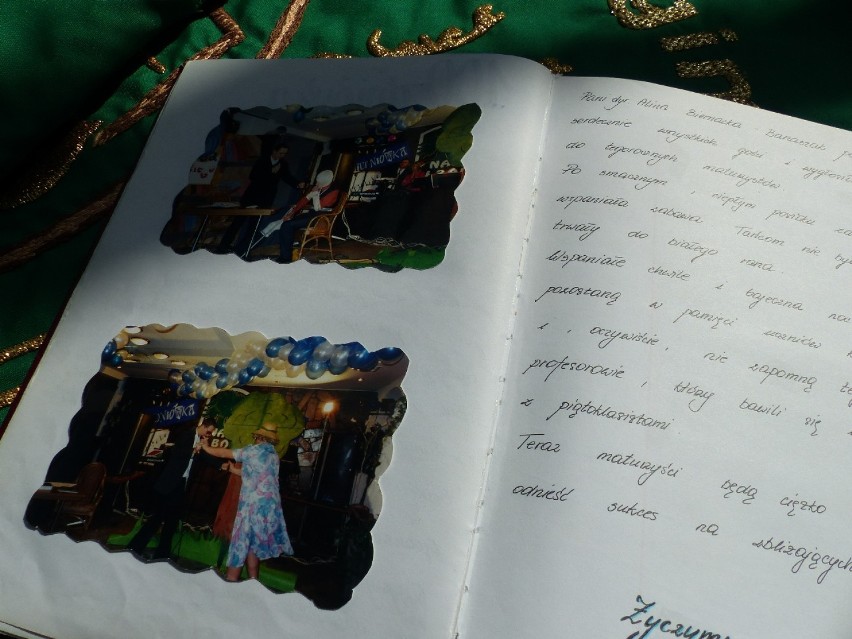 STUDNIÓWKA
NA
NIÓWKA
BO
Pani dyr Alina Biernacka - Banaszak
serdecznie wszystkich gości i
do tegorocznych maturzystów
Po smacznym, ciepłym posiłku
wspaniała zabawa. Tańcom nie
trwały do białego rana.
Wspaniałe chwile i bajeczna noc
pozostaną w pamięci uczniów
i, oczywiście, nie zapomną
profesorowie, którzy bawili się
z piątoklasistami.
Teraz maturzyści będą ciężko
odnieść sukces na zbliżających
Życzymy